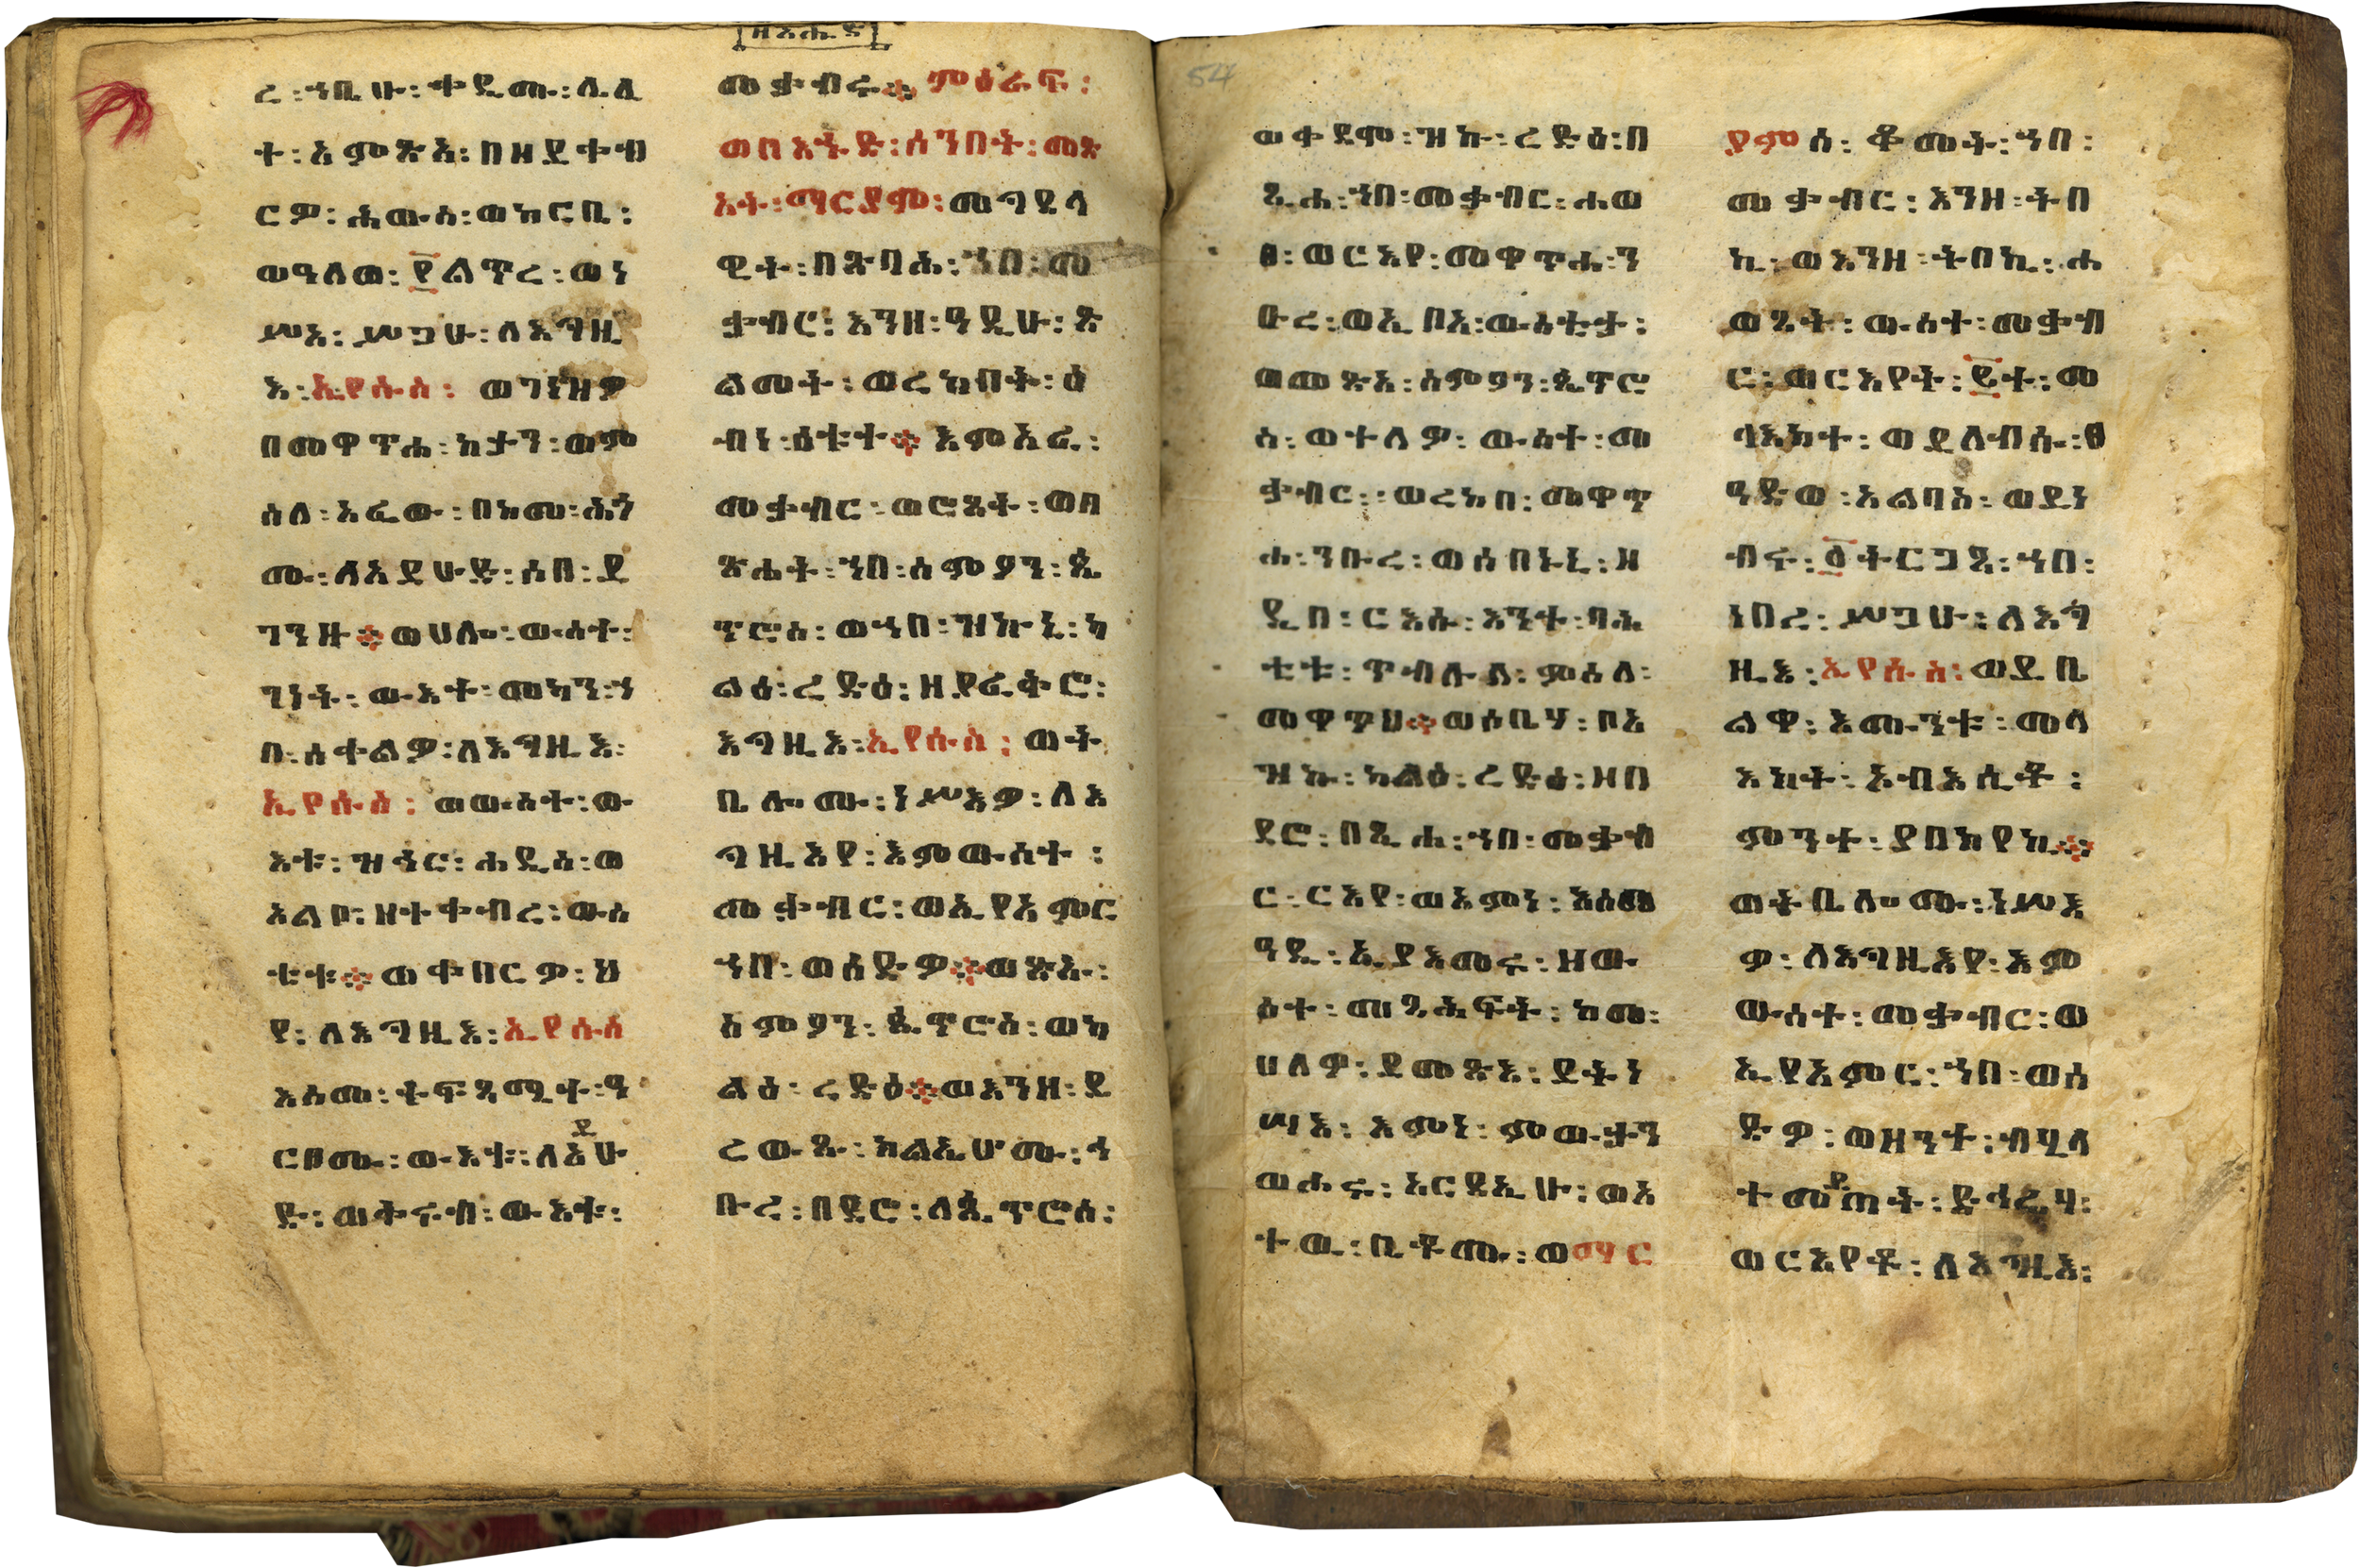 ዘእሑድ
ረ፡ኀቤሁ፡ቀዲሙ፡ሌሊ
ተ፡አምጽአ፡በዘይቀብ
ርዎ፡ሐውሰ፡ወከርቤ፡
ወዓለወ፡፻ልጥረ፡ወነ
ሥአ፡ሥጋሁ፡ለእግዚ
እ፡ኢየሱስ፡ ወገነዝዎ
በመዋጥሐ፡ከታን፡ወም
ስለ፡አፈው፡በከመ፡ሕጎ
ሙ፡ለአይሁድ፡ሰበ፡ይ
ገንዙ፨ወሀሎ፡ውስተ፡
ገነት፡ውእቱ፡መካን፡ኀ
በ፡ሰቀልዎ፡ለእግዚእ፡
ኢየሱስ፡ ወውስተ፡ው
እቱ፡ዝኅር፡ሐዲስ፡ወ
አልቦ፡ዘተቀብረ፡ውስ
ቴቱ፨ወቀበርዎ፡ህ
የ፡ለእግዚእ፡ኢየሱስ
እስመ፡ትፍጻሜተ፡ዓ
ርቦሙ፡ውእቱ፡ለአይሁ
ድ፡ወቅሩብ፡ውእቱ፡
መቃብሩ፨ምዕራፍ፡
ወበእሑድ፡ሰንበት፡መጽ
አት፡ማርያም፡መግደላ
ዊት፡በጽባሕ፡ኀበ፡መ
ቃብር፡እንዘ፡ዓዲሁ፡ጽ
ልመት፡ወረከበት፡ዕ
ብነ፡ዕቱተ፨እምአፈ፡
መቃብር፡ወሮጸት፡ወበ
ጽሐት፡ኀበ፡ስምዖን፡ጴ
ጥሮስ፡ወኀበ፡ዝኩኒ፡ካ
ልዕ፡ረድዕ፡ዘያፈቅሮ፡
እግዚእ፡ኢየሱስ፡ ወት
ቤሎሙ፡ነሥእዎ፡ለእ
ግዚእየ፡እምውስተ፡
መቃብር፡ወኢየአምር
ኀበ፡ወሰድዎ፨ወጽኡ፡
ስምዖን፡ጴጥሮስ፡ወካ
ልዕ፡ረድዕ፨ወእንዘ፡ይ
ረውጹ፡ክልኤሆሙ፡ኅ
ቡረ፡በደሮ፡ለጴጥሮስ፡
ወቀደሞ፡ዝኩ፡ረድዕ፡በ
ጺሐ፡ኀበ፡መቃብር፡ሐወ
ፀ፡ወርእየ፡መዋጥሐ፡ን
ቡረ፡ወኢቦአ፡ውስቴታ፡
ወመጽአ፡ስምዖን፡ጴጥሮ
ስ፡ወተለዎ፡ውስተ፡መ
ቃብር፡ወረከበ፡መዋጥ
ሐ፡ንቡረ፡ወሰበኑኒ፡ዘ
ዲበ፡ርእሱ፡እንተ፡ባሕ
ቲቱ፡ጥብሉል፡ምስለ፡
መዋጥህ፨ወሶቤሃ፡ቦአ
ዝኩ፡ካልዕ፡ረድዕ፡ዘበ
ደሮ፡በጺሐ፡ኀበ፡መቃብ
ር፡ርእየ፡ወአምነ፡እስመ
ዓዲ፡ኢያእመሩ፡ዘው
ስተ፡መጻሕፍት፡ከመ፡
ሀለዎ፡ይመጽእ፡ይትነ
ሣእ፡እምነ፡ምውታን
ወሐሩ፡አርዳኢሁ፡ወአ
ተዉ፡ቤቶሙ፡ወማር
ያምሰ፡ቆመት፡ኀበ፡
መቃብር፡እንዘ፡ትበ
ኪ፡ወእንዘ፡ትበኪ፡ሐ
ወጸት፡ውስተ፡መቃብ
ር፡ወርእየት፡፪ተ፡መ
ላእክተ፡ወይለብሱ፡ፀ
ዓድወ፡አልባሰ፡ወይነ
ብሩ፡፩ትርጋጺ፡ኀበ፡
ነበረ፡ሥጋሁ፡ለእግ
ዚእ፡ኢየሱስ፡ወይቤ
ልዋ፡እሙንቱ፡መላ
እክት፡እብእሲቶ፡
ምንተ፡ያበክየኪ፨
ወትቤሎሙ፡ነሥእ
ዎ፡ለእግዚእየ፡እም
ውስተ፡መቃብር፡ወ
ኢየአምር፡ኀበ፡ወሰ
ድዎ፡ወዘንተ፡ብሂላ
ተመይጠት፡ድኅሬሃ፡
ወርእየቶ፡ለእግዚእ፡